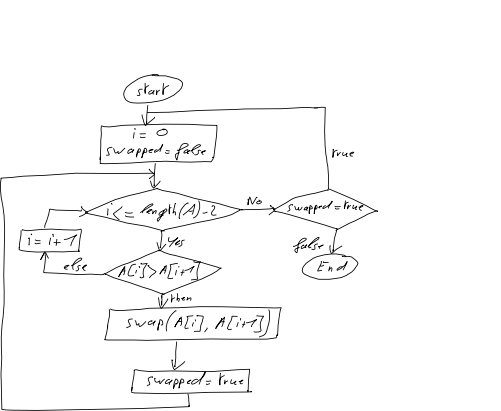 start
i = 0
swapped = false
true
i <= length(A) - 2
No
swapped = true
Yes
false
i = i+1
End
else
A[i] > A[i+1]
then
swap(A[i], A[i+1])
swapped = true